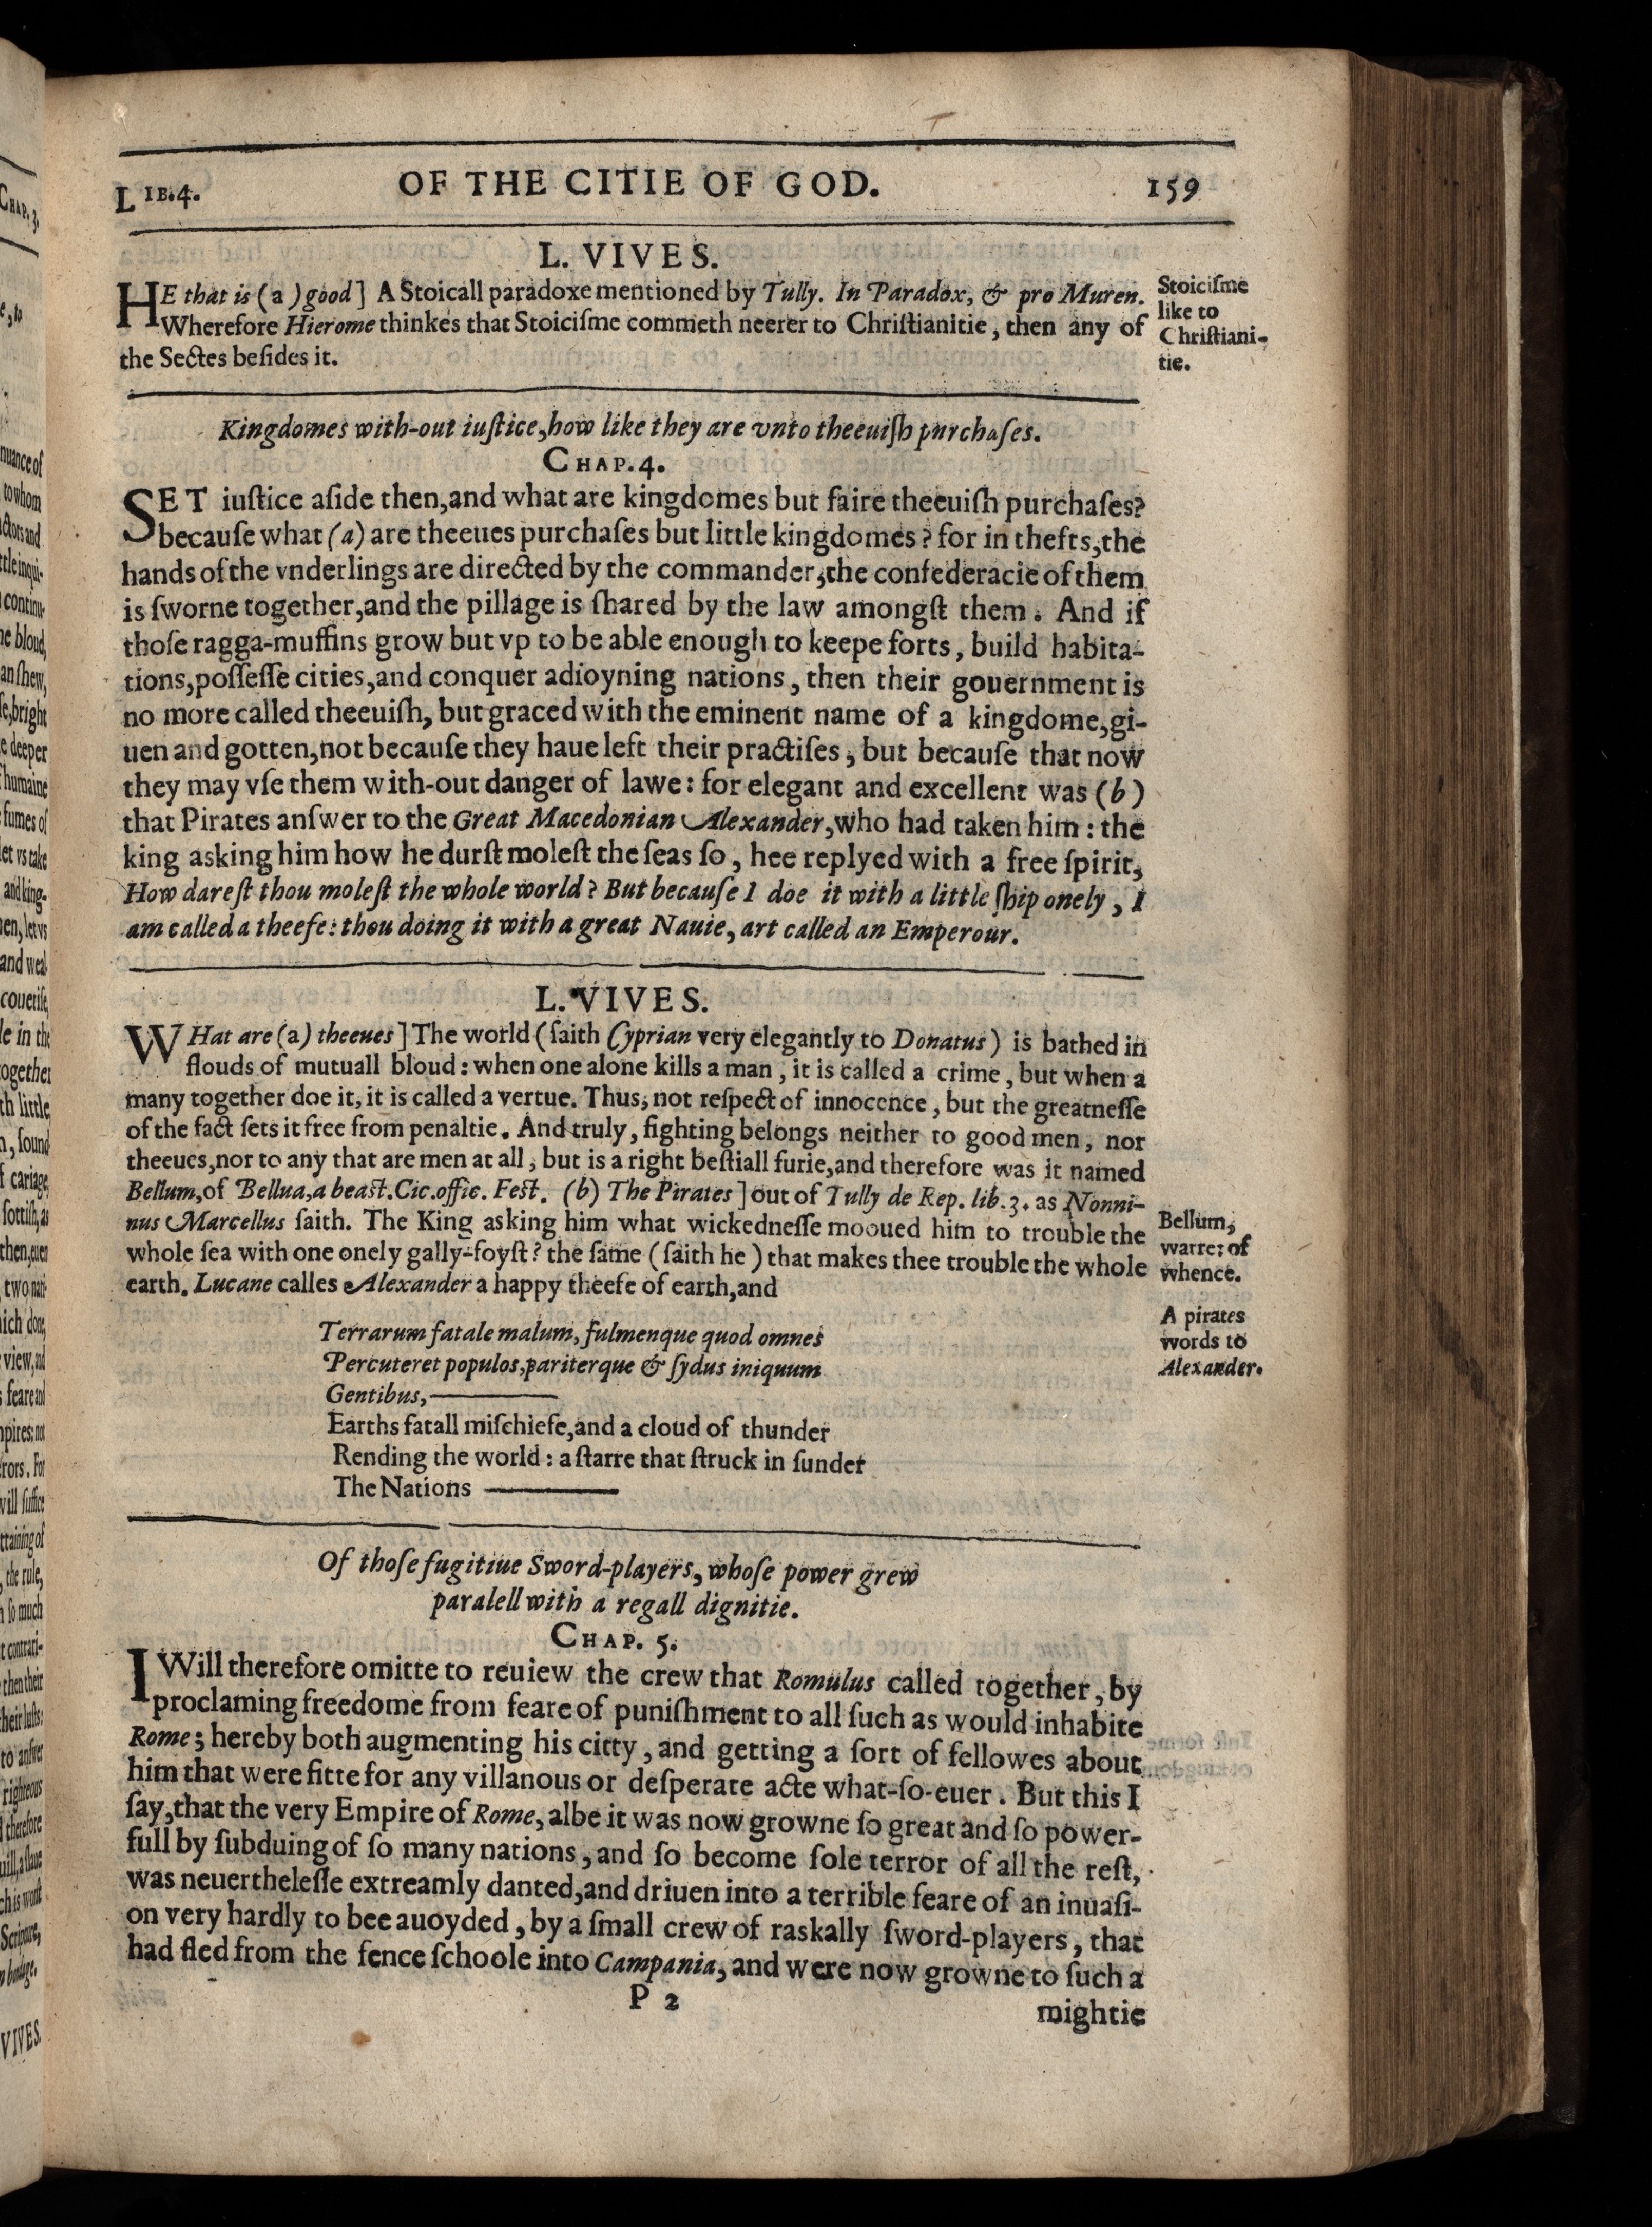 LIB.4. OF THE CITIE OF GOD. 159
L. VIVES.
HE that is (a) good] A Stoicall paradoxe mentioned by Tully. In Paradox, & pro Muren.
Wherefore Hierome thinkes that Stoiciſme commeth neerer to Chriſtianitie, then any of
the Sectes beſides it.
Stoiciſme
like to
Chriſtiani-
tie.
Kingdomes with-out iuſtice, how like they are vnto theeuiſh purchaſes.
CHAP. 4.
SET iuſtice aſide then, and what are kingdomes but faire theeuiſh purchaſes?
becauſe what (a) are theeues purchaſes but little kingdomes? for in thefts, the
hands of the vnderlings are directed by the commander, the confederacie of them
is ſworne together, and the pillage is ſhared by the law amongſt them. And if
thoſe ragga-muffins grow but vp to be able enough to keepe forts, build habita-
tions, poſſeſſe cities, and conquer adioyning nations, then their gouernment is
no more called theeuiſh, but graced with the eminent name of a kingdome, gi-
uen and gotten, not becauſe they haue left their practiſes, but becauſe that now
they may vſe them with-out danger of lawe: for elegant and excellent was (b)
that Pirates anſwer to the Great Macedonian Alexander, who had taken him: the
king asking him how he durſt moleſt the ſeas ſo, hee replyed with a free ſpirit,
How dareſt thou moleſt the whole world? But becauſe I doe it with a little ſhip onely, I
am called a theefe: thou doing it with a great Nauie, art called an Emperour.
L. VIVES.
WHat are (a) theeues] The world (ſaith Cyprian very elegantly to Donatus) is bathed in
flouds of mutuall bloud: when one alone kills a man, it is called a crime, but when a
many together doe it, it is called a vertue. Thus, not reſpect of innocence, but the greatneſſe
of the fact ſets it free from penaltie. And truly, fighting belongs neither to good men, nor
theeues, nor to any that are men at all, but is a right beſtiall furie, and therefore was it named
Bellum, of Bellua, a beaſt. Cic. offic. Feſt. (b) The Pirates] out of Tully de Rep. lib. 3. as Nonni-
nus Marcellus ſaith. The King asking him what wickedneſſe mooued him to trouble the
whole ſea with one onely gally-foyſt? the ſame (ſaith he) that makes thee trouble the whole
earth. Lucane calles Alexander a happy theefe of earth, and
Bellum,
warre: of
whence.
A pirates
words to
Alexander.
Terrarum fatale malum, fulmenque quod omnes
Percuteret populos, pariterque & ſydus iniquum
Gentibus,———
Earths fatall miſchiefe, and a cloud of thunder
Rending the world: a ſtarre that ſtruck in ſunder
The Nations ———
Of thoſe fugitiue Sword-players, whoſe power grew
paralell with a regall dignitie.
CHAP. 5.
I Will therefore omitte to reuiew the crew that Romulus called together, by
proclaming freedome from feare of puniſhment to all ſuch as would inhabite
Rome; hereby both augmenting his citty, and getting a ſort of fellowes about
him that were fitte for any villanous or deſperate acte what-ſo-euer. But this I
ſay, that the very Empire of Rome, albe it was now growne ſo great and ſo power-
full by ſubduing of ſo many nations, and ſo become ſole terror of all the reſt,
was neuertheleſſe extreamly danted, and driuen into a terrible feare of an inuaſi-
on very hardly to bee auoyded, by a ſmall crew of raskally ſword-players, that
had fled from the fence ſchoole into Campania, and were now growne to ſuch a
P 2
mightie